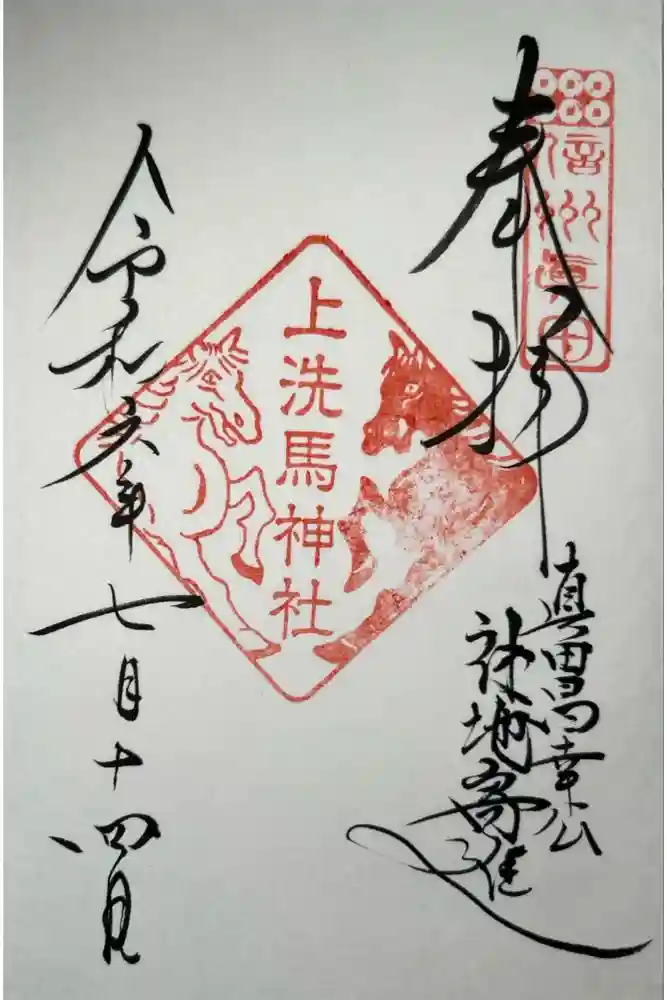 奉拝
信州真田
真田昌幸公
神地寄進
上洗馬神社
令和六年七月十四日